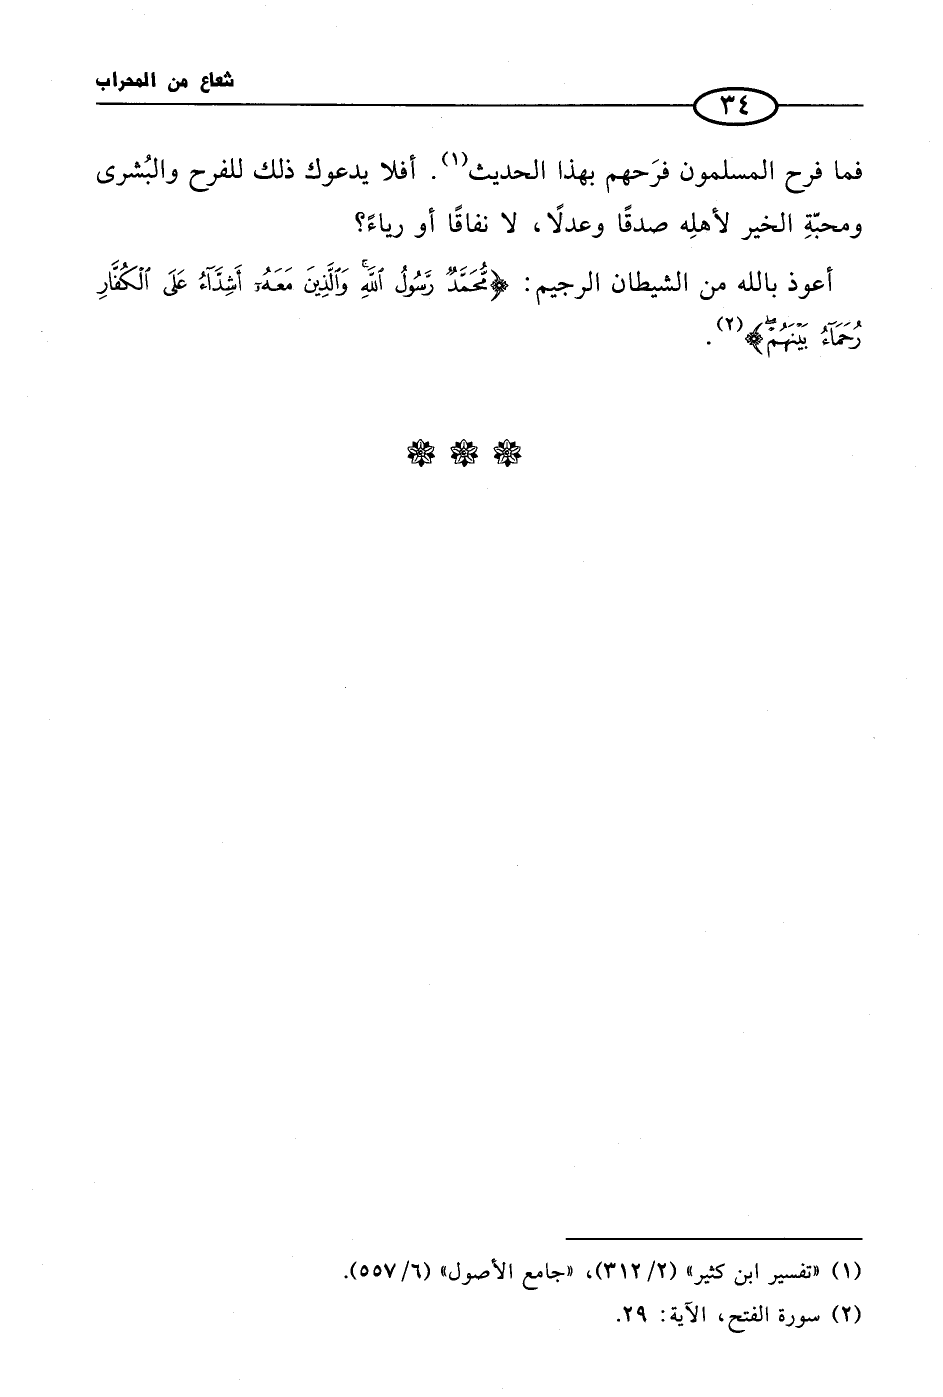 شعاع من المحراب
٣٤
فما فرح المسلمون فرَحهم بهذا الحديث(١). أفلا يدعوك ذلك للفرح والبُشرى
ومحبّةِ الخير لأهلِه صدقًا وعدلًا، لا نفاقًا أو رياءً؟
أعوذ بالله من الشيطان الرجيم: ﴿مُّحَمَّدٌ رَّسُولُ ٱللَّهِۚ وَٱلَّذِينَ مَعَهُۥٓ أَشِدَّآءُ عَلَى ٱلْكُفَّارِ
رُحَمَآءُ بَيْنَهُمْۖ﴾(٢).
(١) «تفسير ابن كثير» (٣١٢/٢)، «جامع الأصول» (٥٥٧/٦).
(٢) سورة الفتح، الآية: ٢٩.